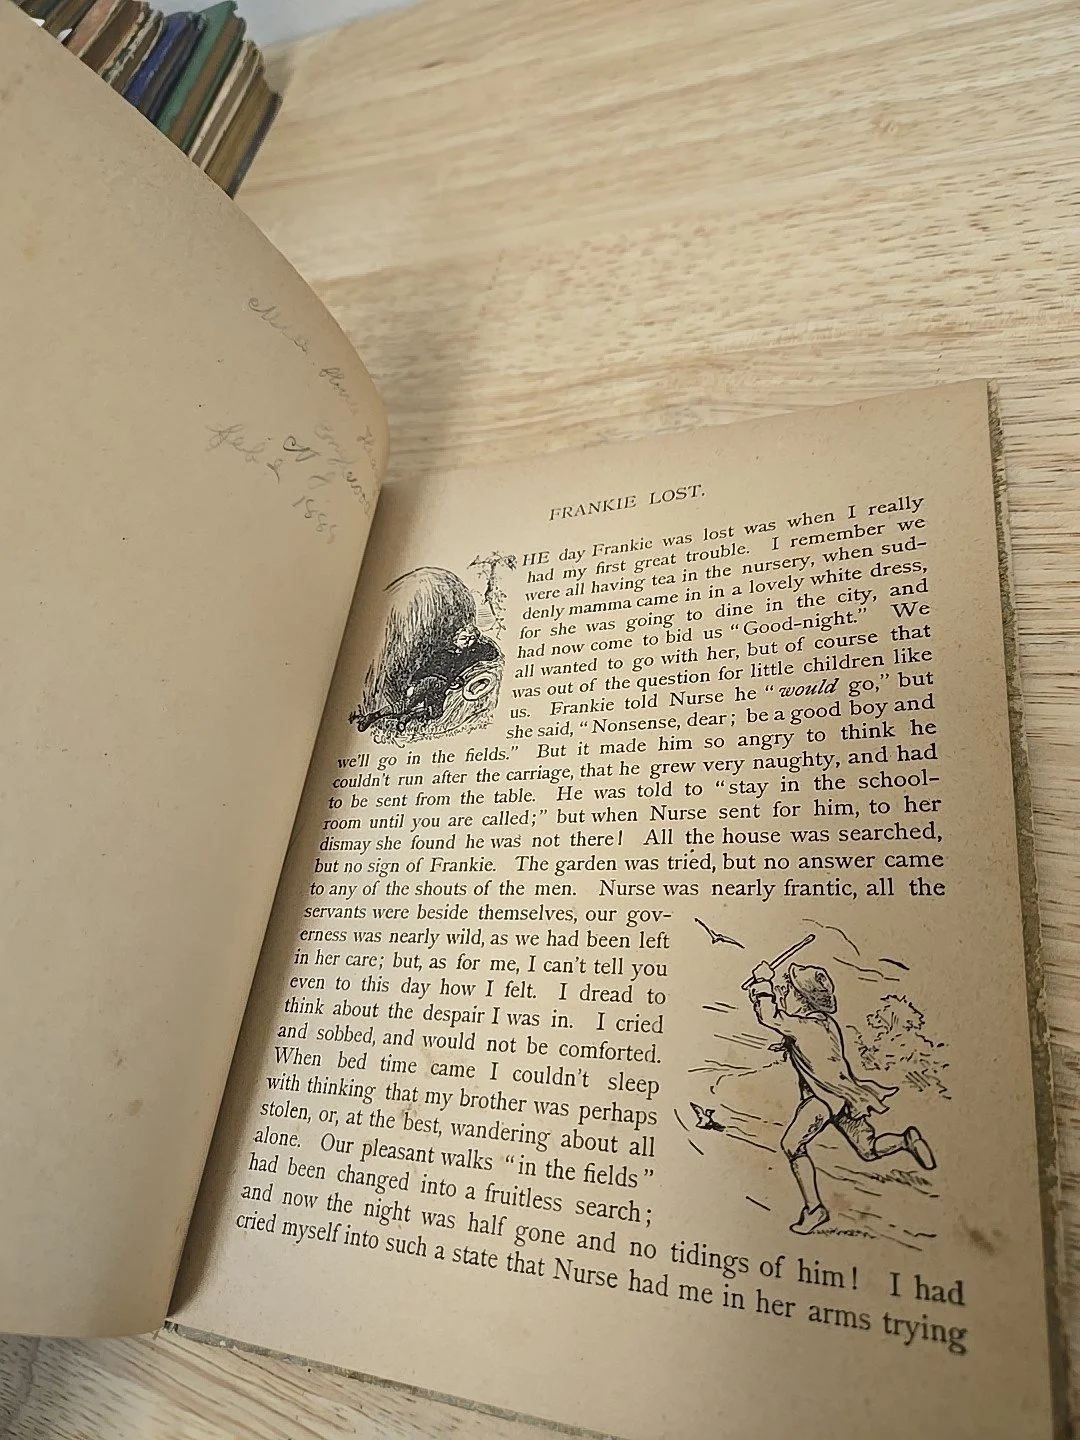 Feb 2
FRANKIE LOST.
THE day Frankie was lost was when I really
had my first great trouble. I remember we
were all having tea in the nursery, when sud-
denly mamma came in in a lovely white dress,
for she was going to dine in the city, and
had now come to bid us “Good-night.” We
all wanted to go with her, but of course that
was out of the question for little children like
us. Frankie told Nurse he “would go,” but
she said, “Nonsense, dear; be a good boy and
we'll go in the fields.” But it made him so angry to think he
couldn't run after the carriage, that he grew very naughty, and had
to be sent from the table. He was told to “stay in the school-
room until you are called;” but when Nurse sent for him, to her
dismay she found he was not there! All the house was searched,
but no sign of Frankie. The garden was tried, but no answer came
to any of the shouts of the men. Nurse was nearly frantic, all the
servants were beside themselves, our gov-
erness was nearly wild, as we had been left
in her care; but, as for me, I can't tell you
even to this day how I felt. I dread to
think about the despair I was in. I cried
and sobbed, and would not be comforted.
When bed time came I couldn't sleep
with thinking that my brother was perhaps
stolen, or, at the best, wandering about all
alone. Our pleasant walks “in the fields”
had been changed into a fruitless search;
and now the night was half gone and no tidings of him! I had
cried myself into such a state that Nurse had me in her arms trying